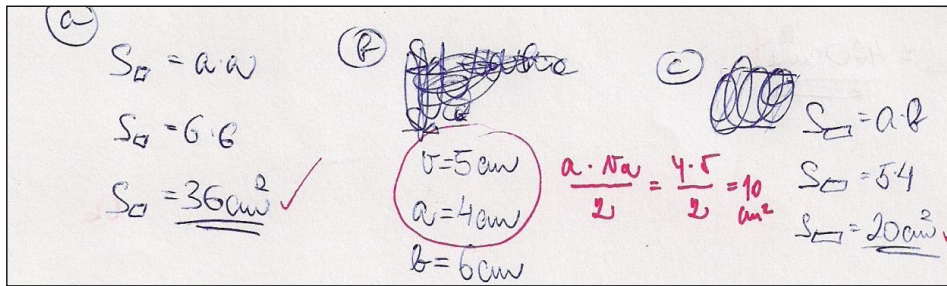 a
S□ = a·a
S□ = 6·6
S□ = 36cm²
b
v=5cm
a=4cm
b=6cm
a · va / 2 = 4·5 / 2 = 10 cm²
c
S▭ = a·b
S▭ = 5·4
S▭ = 20cm²